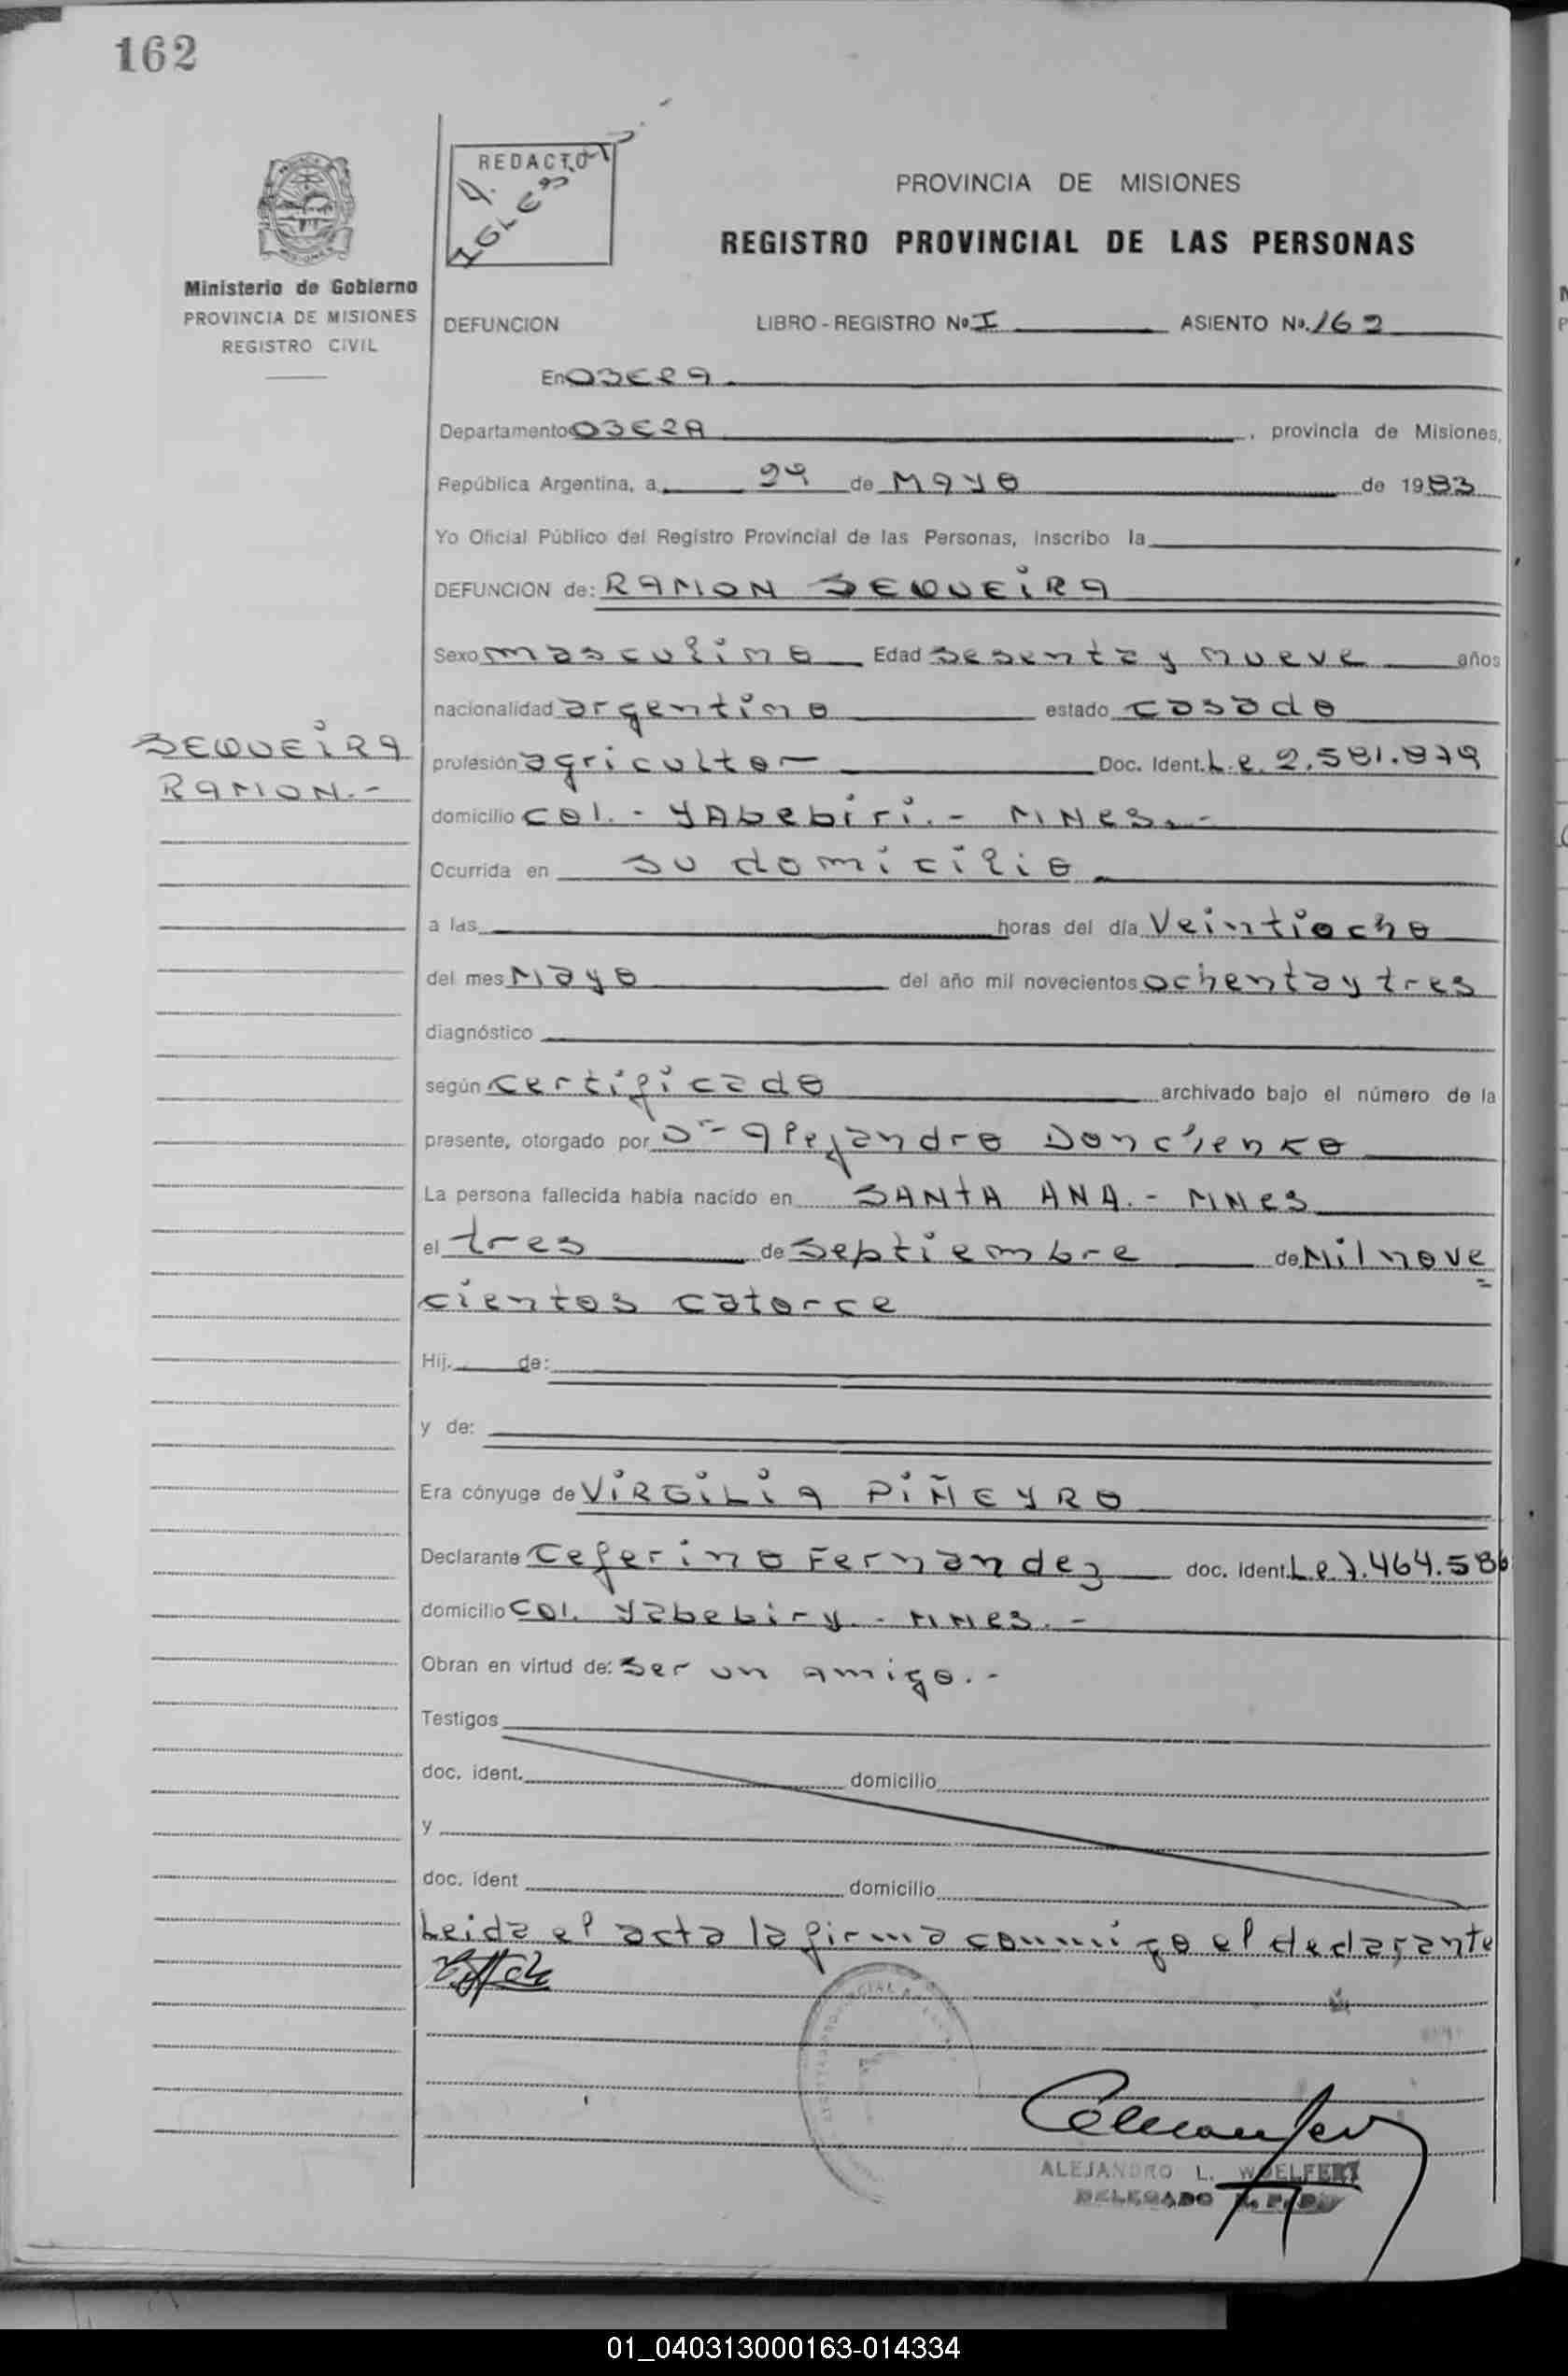 162
REDACTO
A.
IGLES
PROVINCIA DE MISIONES
REGISTRO PROVINCIAL DE LAS PERSONAS
Ministerio de Gobierno
PROVINCIA DE MISIONES
REGISTRO CIVIL
DEFUNCION LIBRO - REGISTRO No. I ASIENTO No. 162
En OBERA
Departamento OBERA, provincia de Misiones,
República Argentina, a 29 de MAYO de 1983
Yo Oficial Público del Registro Provincial de las Personas, inscribo la
DEFUNCION de: RAMON SEQUEIRA
Sexo masculino Edad sesenta y nueve años
nacionalidad argentino estado casado
SEQUEIRA
RAMON.-
profesión agricultor Doc. Ident. L.e. 2.581.879
domicilio COl. - YAbebiri. - MNes.-
Ocurrida en su domicilio
a las horas del día Veintiocho
del mes Mayo del año mil novecientos ochenta y tres
diagnóstico
según certificado archivado bajo el número de la
presente, otorgado por Dr- Alejandro Donchenko
La persona fallecida había nacido en SANTA ANA.- MNes
el tres de septiembre de Mil nove=
cientos catorce
Hij. de:
y de:
Era cónyuge de VIRGILIA PIÑEYRO
Declarante Ceferino Fernandez doc. ident. L e 7.464.586
domicilio COl. Yabebiry. - MNes.-
Obran en virtud de: ser un amigo.-
Testigos
doc. ident. domicilio
y
doc. ident domicilio
Leida el acta la firma conmigo el declarante
ALEJANDRO L. WOELFERT
DELEGADO R. P. P.
01_040313000163-014334